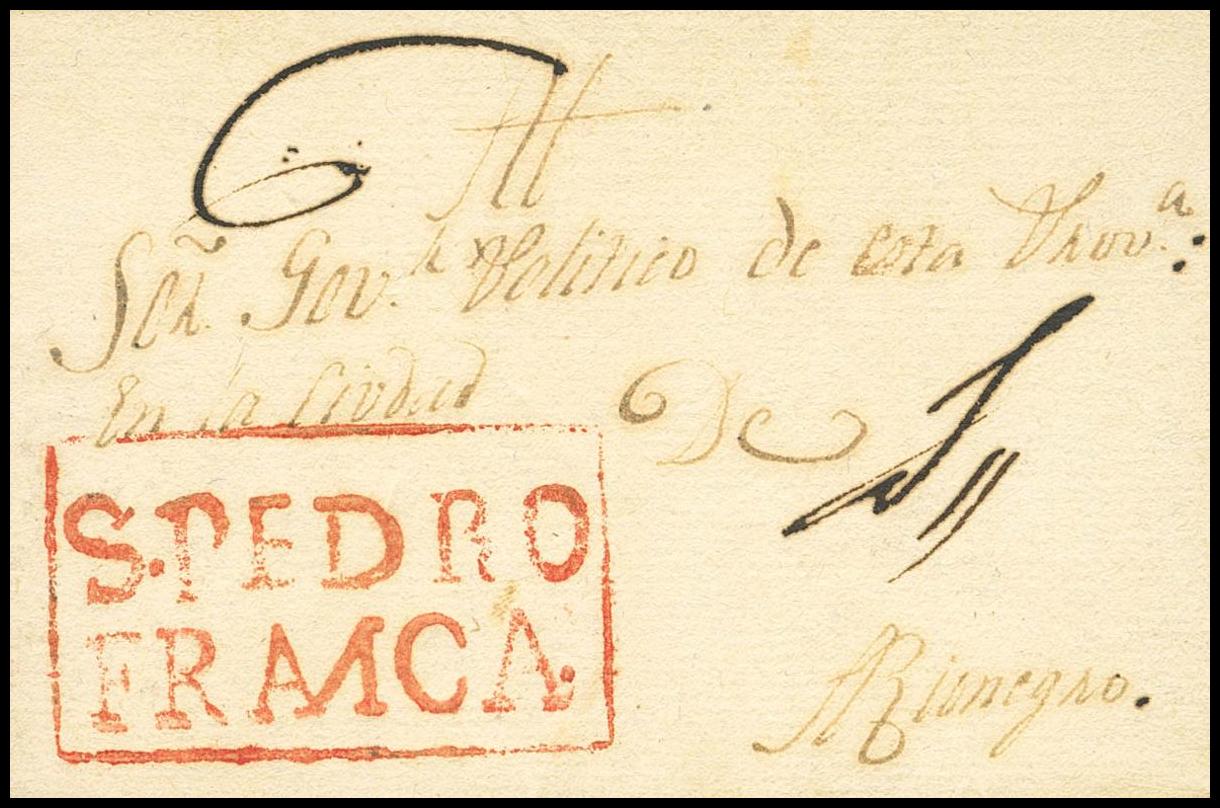 Al
Señ.r Gov.r Politico de esta Prov.a
En la Ciudad
De
S. PEDRO
FRANCA.
A Rionegro.